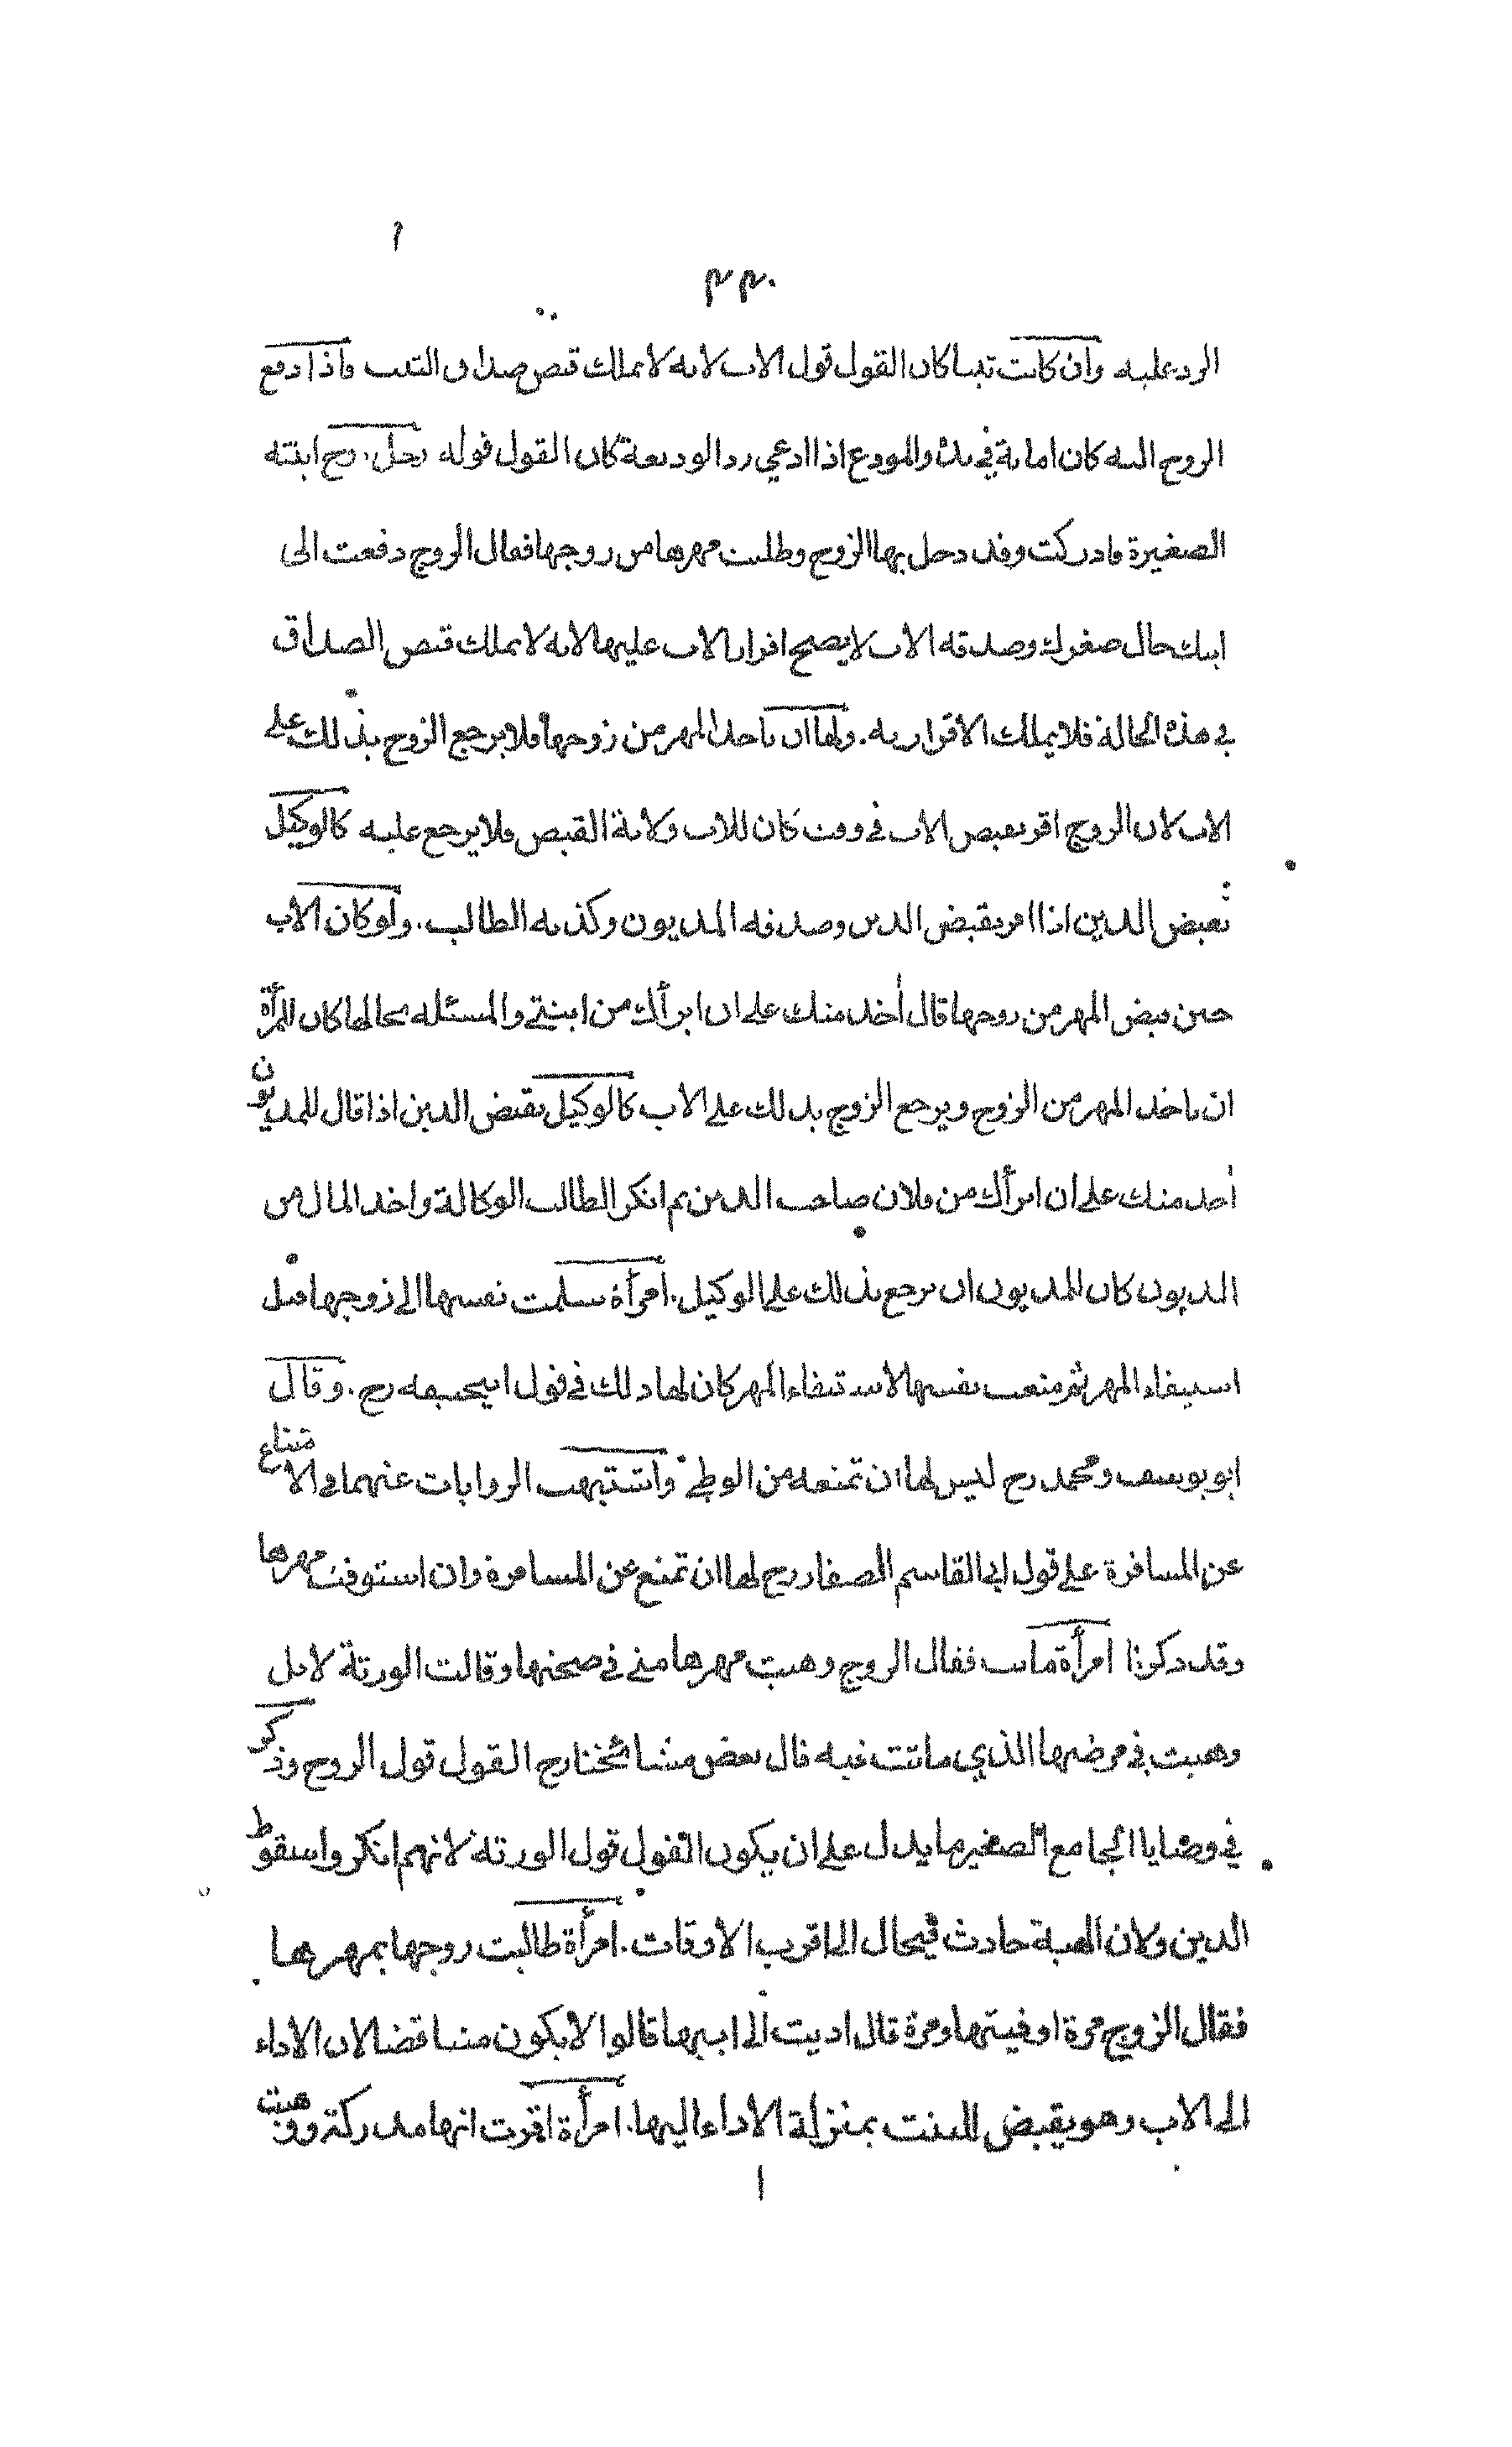 ٢٣٠
الرد عليه وان كانت ثيبا كان القول قول الاب لانه لا يملك قبض صداق الثيب فاذا دفع
الزوج اليه كان امانة في يده والمودع اذا ادعي رد الوديعة كان القول قوله رجل زوج ابنته
الصغيرة فادركت وقد دخل بها الزوج وطلبت مهرها من زوجها فقال الزوج دفعت الى
ابيك حال صغرك وصدقه الاب لا يصح اقرار الاب عليها لانه لا يملك قبض الصداق
في هذه الحالة فلا يملك الاقرار به. ولها ان تاخذ المهر من زوجها ولا يرجع الزوج بذلك على
الاب لان الزوج اقر بقبض الاب في وقت كان للاب ولاية القبض ولا يرجع عليه كالوكيل
بقبض الدين اذا اقر بقبض الدين وصدقه المديون وكذبه الطالب. ولو كان الاب
حين قبض المهر من زوجها قال أخذ منك على ان ابرأك من ابنتي والمسئله بحالها كان للمرأة
ان تاخذ المهر من الزوج ويرجع الزوج بذلك على الاب كالوكيل بقبض الدين اذا قال للمديون
أخذ منك على ان ابرأك من فلان صاحب الدين ثم انكر الطالب الوكالة واخذ المال من
المديون كان للمديون ان يرجع بذلك على الوكيل. امرأة سلمت نفسها الى زوجها قبل
استيفاء المهر ثم منعت نفسها لاستيفاء المهر كان لها ذلك في قول ابيحنيفه رح. وقال
ابو يوسف ومحمد رح ليس لها ان تمنعه من الوطي واشتبهت الروايات عنهما في الامتناع
عن المسافرة على قول ابي القاسم الصفار رح لها ان تمنع عن المسافرة وان استوفت مهرها
وقد ذكرنا امرأة ماتت فقال الزوج وهبت مهرها مني في صحتها وقالت الورثة لا بل
وهبت في مرضها الذي ماتت فيه قال بعض مشائخنا رح القول قول الزوج وذكر
في وصايا الجامع الصغير ما يدل على ان يكون القول قول الورثة لانهم انكروا سقوط
الدين ولان الهبة حادث فيحال الى اقرب الاوقات. امرأة طالبت زوجها بمهرها
فقال الزوج مرة اوفيتها ومرة قال اديت الى ابيها قالوا لا يكون مناقضا لان الاداء
الى الاب وهو يقبض للبنت بمنزلة الاداء اليها. امرأة اقرت انها مدركة ووهبت